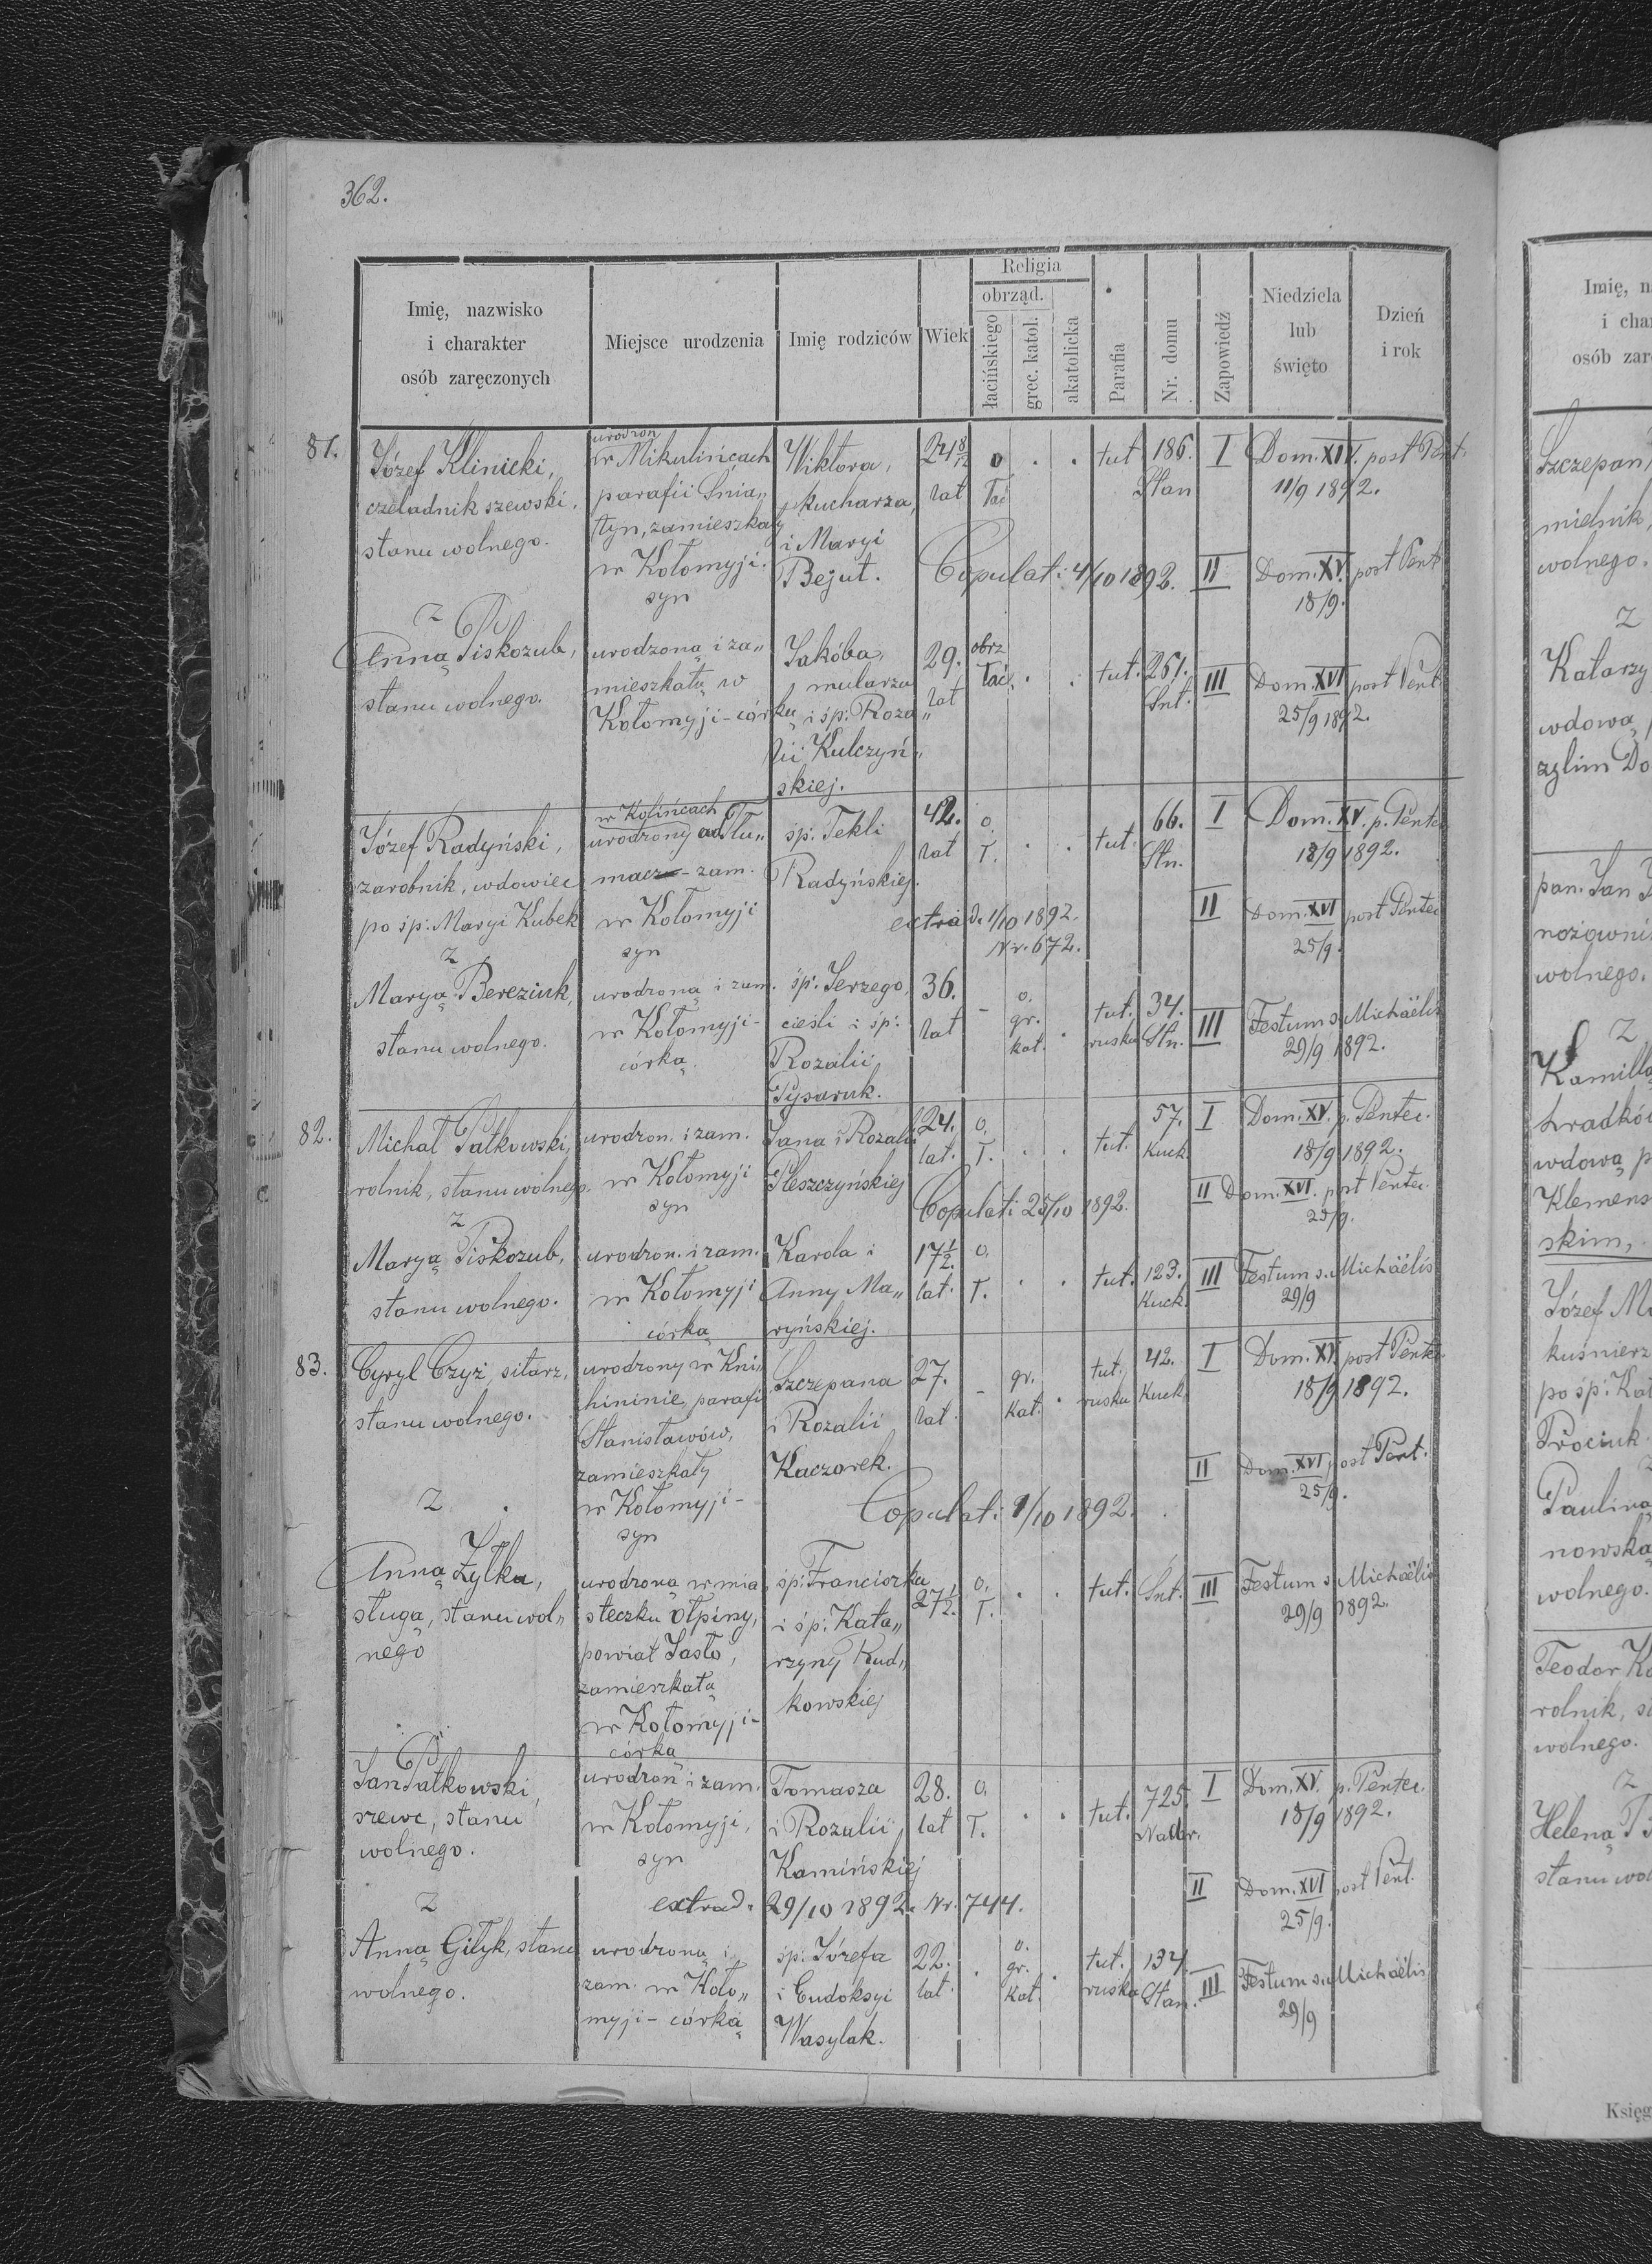 362.
Religia
obrząd.
Imię, nazwisko
i charakter
osób zaręczonych
Miejsce urodzenia
Imię rodziców
Wiek
łacińskiego
grec. katol.
akatolicka
Parafia
Nr. domu
Zapowiedź
Niedziela
lub
święto
Dzień
i rok
81.
Józef Klinicki,
czeladnik szewski,
stanu wolnego.
z
urodzon
w Mikulińcach
parafii Śnia„
tyn, zamieszkały
w Kołomyji.
syn
Wiktora,
kucharza,
i Maryi
Bejut.
lat
o
łać
. .
tut
186.
Stan
I Dom. XIV. post Pent.
11/9 1892.
Copulati 4/10 1892.
II Dom. XV. post Pent
18/9.
Anną Piskozub,
stanu wolnego.
urodzoną i za„
mieszkałą w
Kołomyji - córką
Jakóba,
mularza
i śp: Roza„
lii Kulczyń„
skiej.
29.
lat
obrz
łać.
. .
tut.
251.
Snt.
III Dom. XVI post Pent
25/9 1892.
Józef Radyński,
zarobnik, wdowiec
po śp: Maryi Kubek
z
w Kolińcach
urodzony ad Tłu„
macz - zam.
w Kołomyji
syn
śp: Tekli
Radyńskiej.
42.
lat
o.
ł.
. .
tut.
66.
Stn.
I Dom. XV. p. Pentec
18/9 1892.
extrad. 1/10 1892.
Nr. 672.
II Dom. XVI post Pentec
25/9.
Maryą Bereziuk,
stanu wolnego.
urodzoną i zam.
w Kołomyji -
córką
śp: Jerzego,
cieśli i śp:
Rozalii
Pysaruk.
36.
lat
-
o.
gr.
kat.
.
tut.
ruska
34.
Stn.
III Festum s. Michäelis
29/9 1892.
82.
Michał Patkowski,
rolnik, stanu wolnego.
z
urodzon. i zam.
w Kołomyji
syn
Jana i Rozalii
Pleszczyńskiej
24.
lat.
o.
ł.
. .
tut.
57.
Kuck.
I Dom. XV. p. Pentec.
18/9 1892.
Copulati 25/10 1892.
II Dom. XVI. post Pentec.
25/9.
Maryą Piskozub,
stanu wolnego.
urodzon. i zam.
w Kołomyji
córką
Karola i
Anny Ma„
ryńskiej.
17½.
lat.
o.
ł.
. .
tut.
123.
Kuck.
III Festum s. Michäelis
29/9
83.
Cyryl Czyż, sitarz,
stanu wolnego.
z
urodzony w Kni„
hininie, parafi
Stanisławów,
zamieszkały
w Kołomyji -
syn
Szczepana
i Rozalii
Kaczorek.
27.
lat.
-
gr.
kat.
.
tut.
ruska
42.
Kuck.
I Dom. XV. post Pentec.
18/9 1892.
II Dom. XVI post Pent.
25/9.
Copulati 1/10 1892.
Anną Żyłka,
sługą, stanu wol„
nego
urodzoną w mia„
steczku Ołpiny,
powiat Jasło,
zamieszkałą
w Kołomyji -
córką
śp: Franciszka
i śp: Kata„
rzyny Rud„
kowskiej
27½.
o.
ł.
. .
tut.
Snt.
III Festum s. Michäelis
29/9 1892.
Jan Patkowski,
szewc, stanu
wolnego.
z
urodzon i zam.
w Kołomyji,
syn
Tomasza
i Rozalii
Kamińskiej
28.
lat
o.
ł.
. .
tut.
725.
Nadw.
I Dom. XV. p. Pentec.
18/9 1892.
II Dom. XVI post Pent.
25/9.
extrad. 29/10 1892. Nr. 744.
Anną Giłyk, stanu
wolnego.
urodzoną i
zam. w Koło„
myji - córką
śp: Józefa
i Eudoksyi
Wasylak.
22.
lat.
.
o.
gr.
kat.
.
tut.
ruska
134.
Stan.
III Festum s. Michäelis
29/9
Imię, n
i cha
osób zar
Szczepan
mielnik,
wolnego.
z
Katarzy
wdową
zglim Do
pan. Jan
nożowni
wolnego.
z
Kamillą
hradków
wdową p
Klemens
skim,
Józef M
kuśnierz
po śp: Kat
Prociuk
Pauliną
nowską
wolnego.
Teodor K
rolnik, s
wolnego.
z
Heleną
stanu wol
Księg